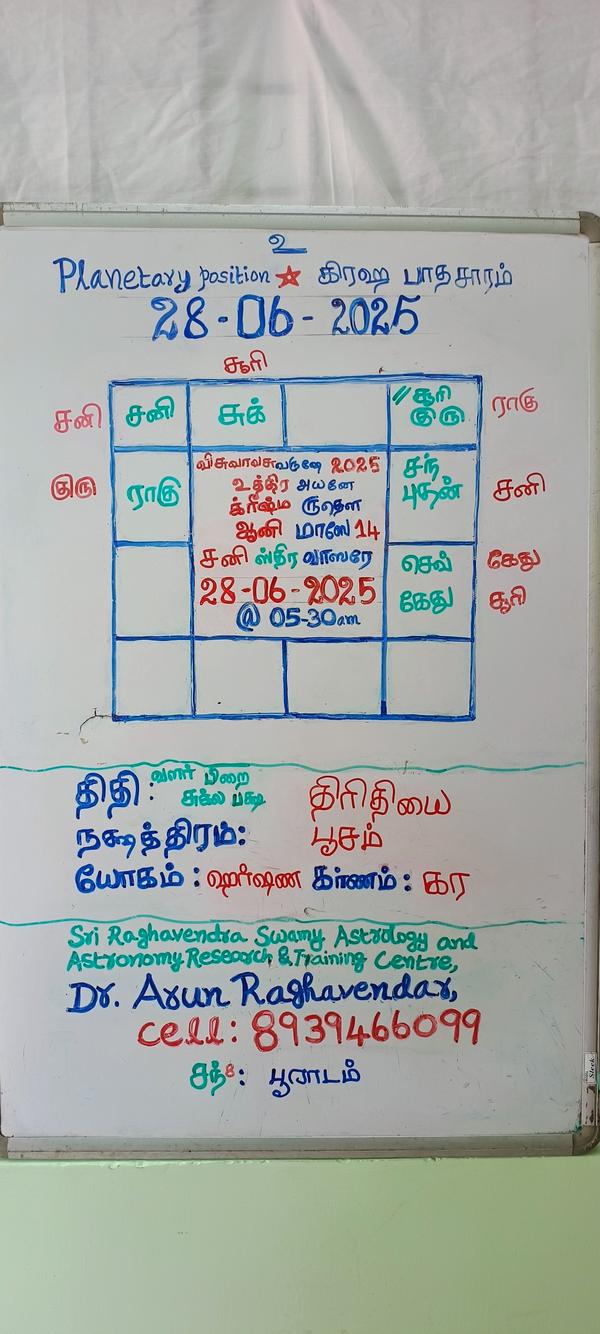 உ
Planetary position ☆ கிரஹ பாதசாரம்
28-06-2025
சூரி
சனி சனி சுக் // சூரி ராகு
குரு
குரு ராகு சந் சனி
புதன்
விசுவாவசுவருஷே 2025
உத்திர அயனே
க்ரீஷ்ம ருதௌ
ஆனி மாஸே 14
சனி ஸ்திர வாஸரே
28-06-2025
@ 05-30am
செவ் கேது
கேது சூரி
திதி: வளர் பிறை திரிதியை
சுக்ல பக்ஷ
நக்ஷத்திரம்: பூசம்
யோகம்: ஹர்ஷண கர்ணம்: கர
Sri Raghavendra Swamy Astrology and
Astronomy Research & Training Centre,
Dr. Arun Raghavendar,
cell: 8939466099
சந்8: பூராடம்